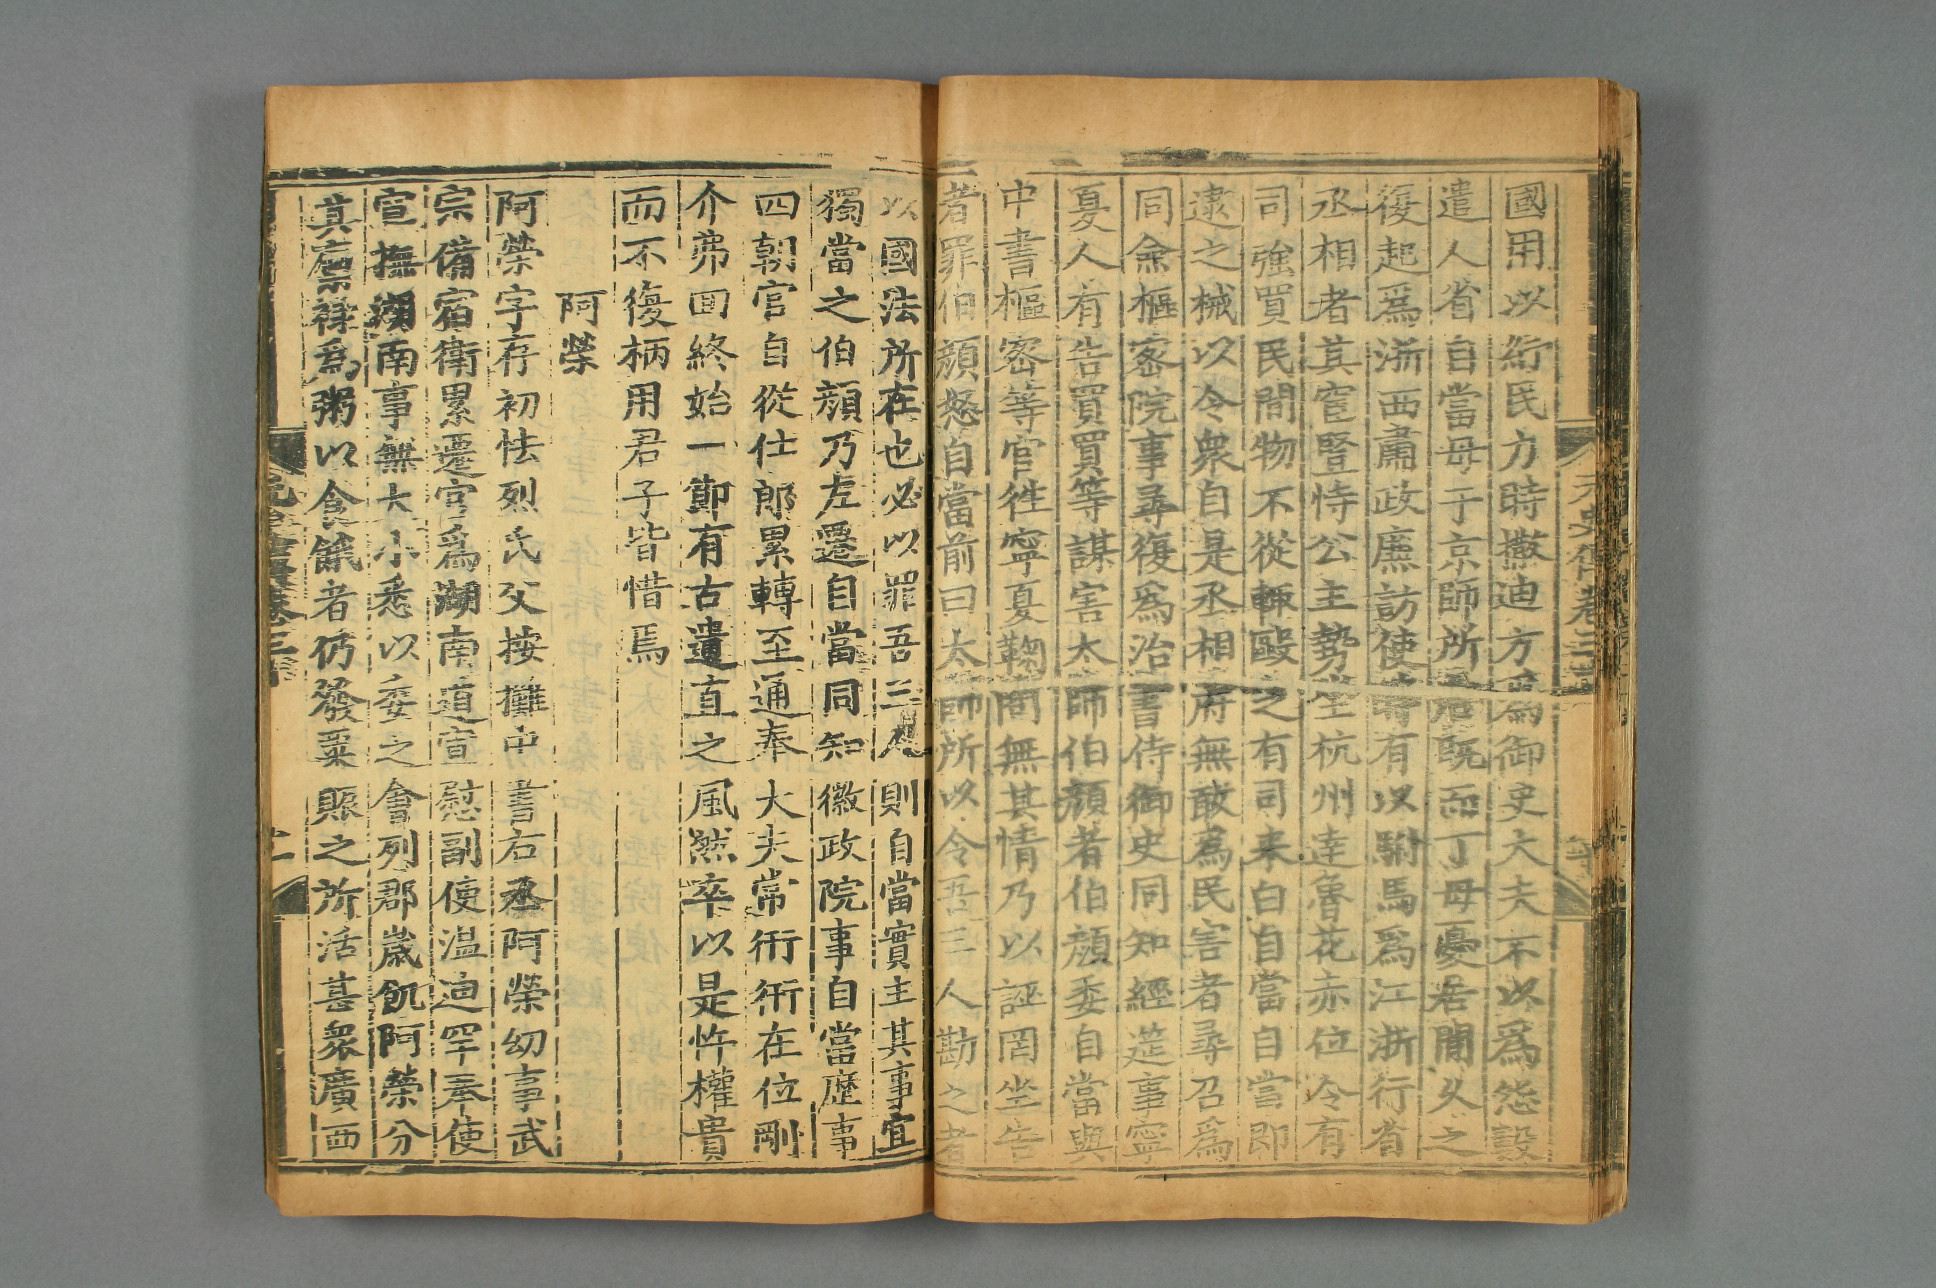 國用以紓民力時撒迪方爲御史大夫不以爲怨設
遣人省自當母于京師所居既而丁母憂居閒久之
復起爲浙西肅政廉訪使時有以駙馬爲江浙行省
丞相者其宦豎恃公主勢坐杭州達魯花赤位令有
司強買民間物不從輒毆之有司来白自當自當即
逮之械以令衆自是丞相府無敢爲民害者尋召爲
同僉樞密院事尋復爲治書侍御史同知經筵事寧
夏人有告買買等謀害太師伯顔者伯顔委自當與
中書樞密等官徃寧夏鞠問無其情乃以誣罔坐告
者罪伯顔怒自當前曰太師所以令吾三人勘之者
以國法所在也必以罪吾三人則自當實主其事宜
獨當之伯顔乃左遷自當同知徽政院事自當歷事
四朝官自從仕郎累轉至通奉大夫常衎衎在位剛
介弗回終始一節有古遺直之風然卒以是忤權貴
而不復柄用君子皆惜焉
阿榮
阿榮字存初怯烈氏父按攤中書右丞阿榮幼事武
宗備宿衛累遷官爲湖南道宣慰副使温迪罕奉使
宣撫湖南事無大小悉以委之會列郡歲飢阿榮分
其廩禄爲粥以食餓者仍發粟賑之所活甚衆廣西
元史傳卷三十